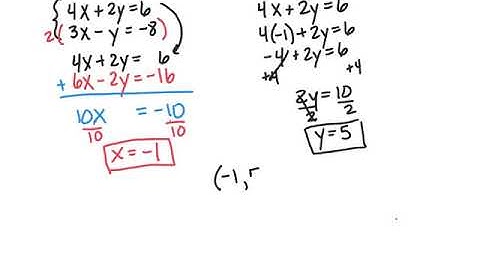 4x+2y=6
2( 3x-y=-8 )
4x+2y= 6
+ 6x-2y=-16
10x = -10
10 10
x=-1
4x+2y=6
4(-1)+2y=6
-4+2y=6
+4 +4
2y=10
2 2
y=5
(-1,